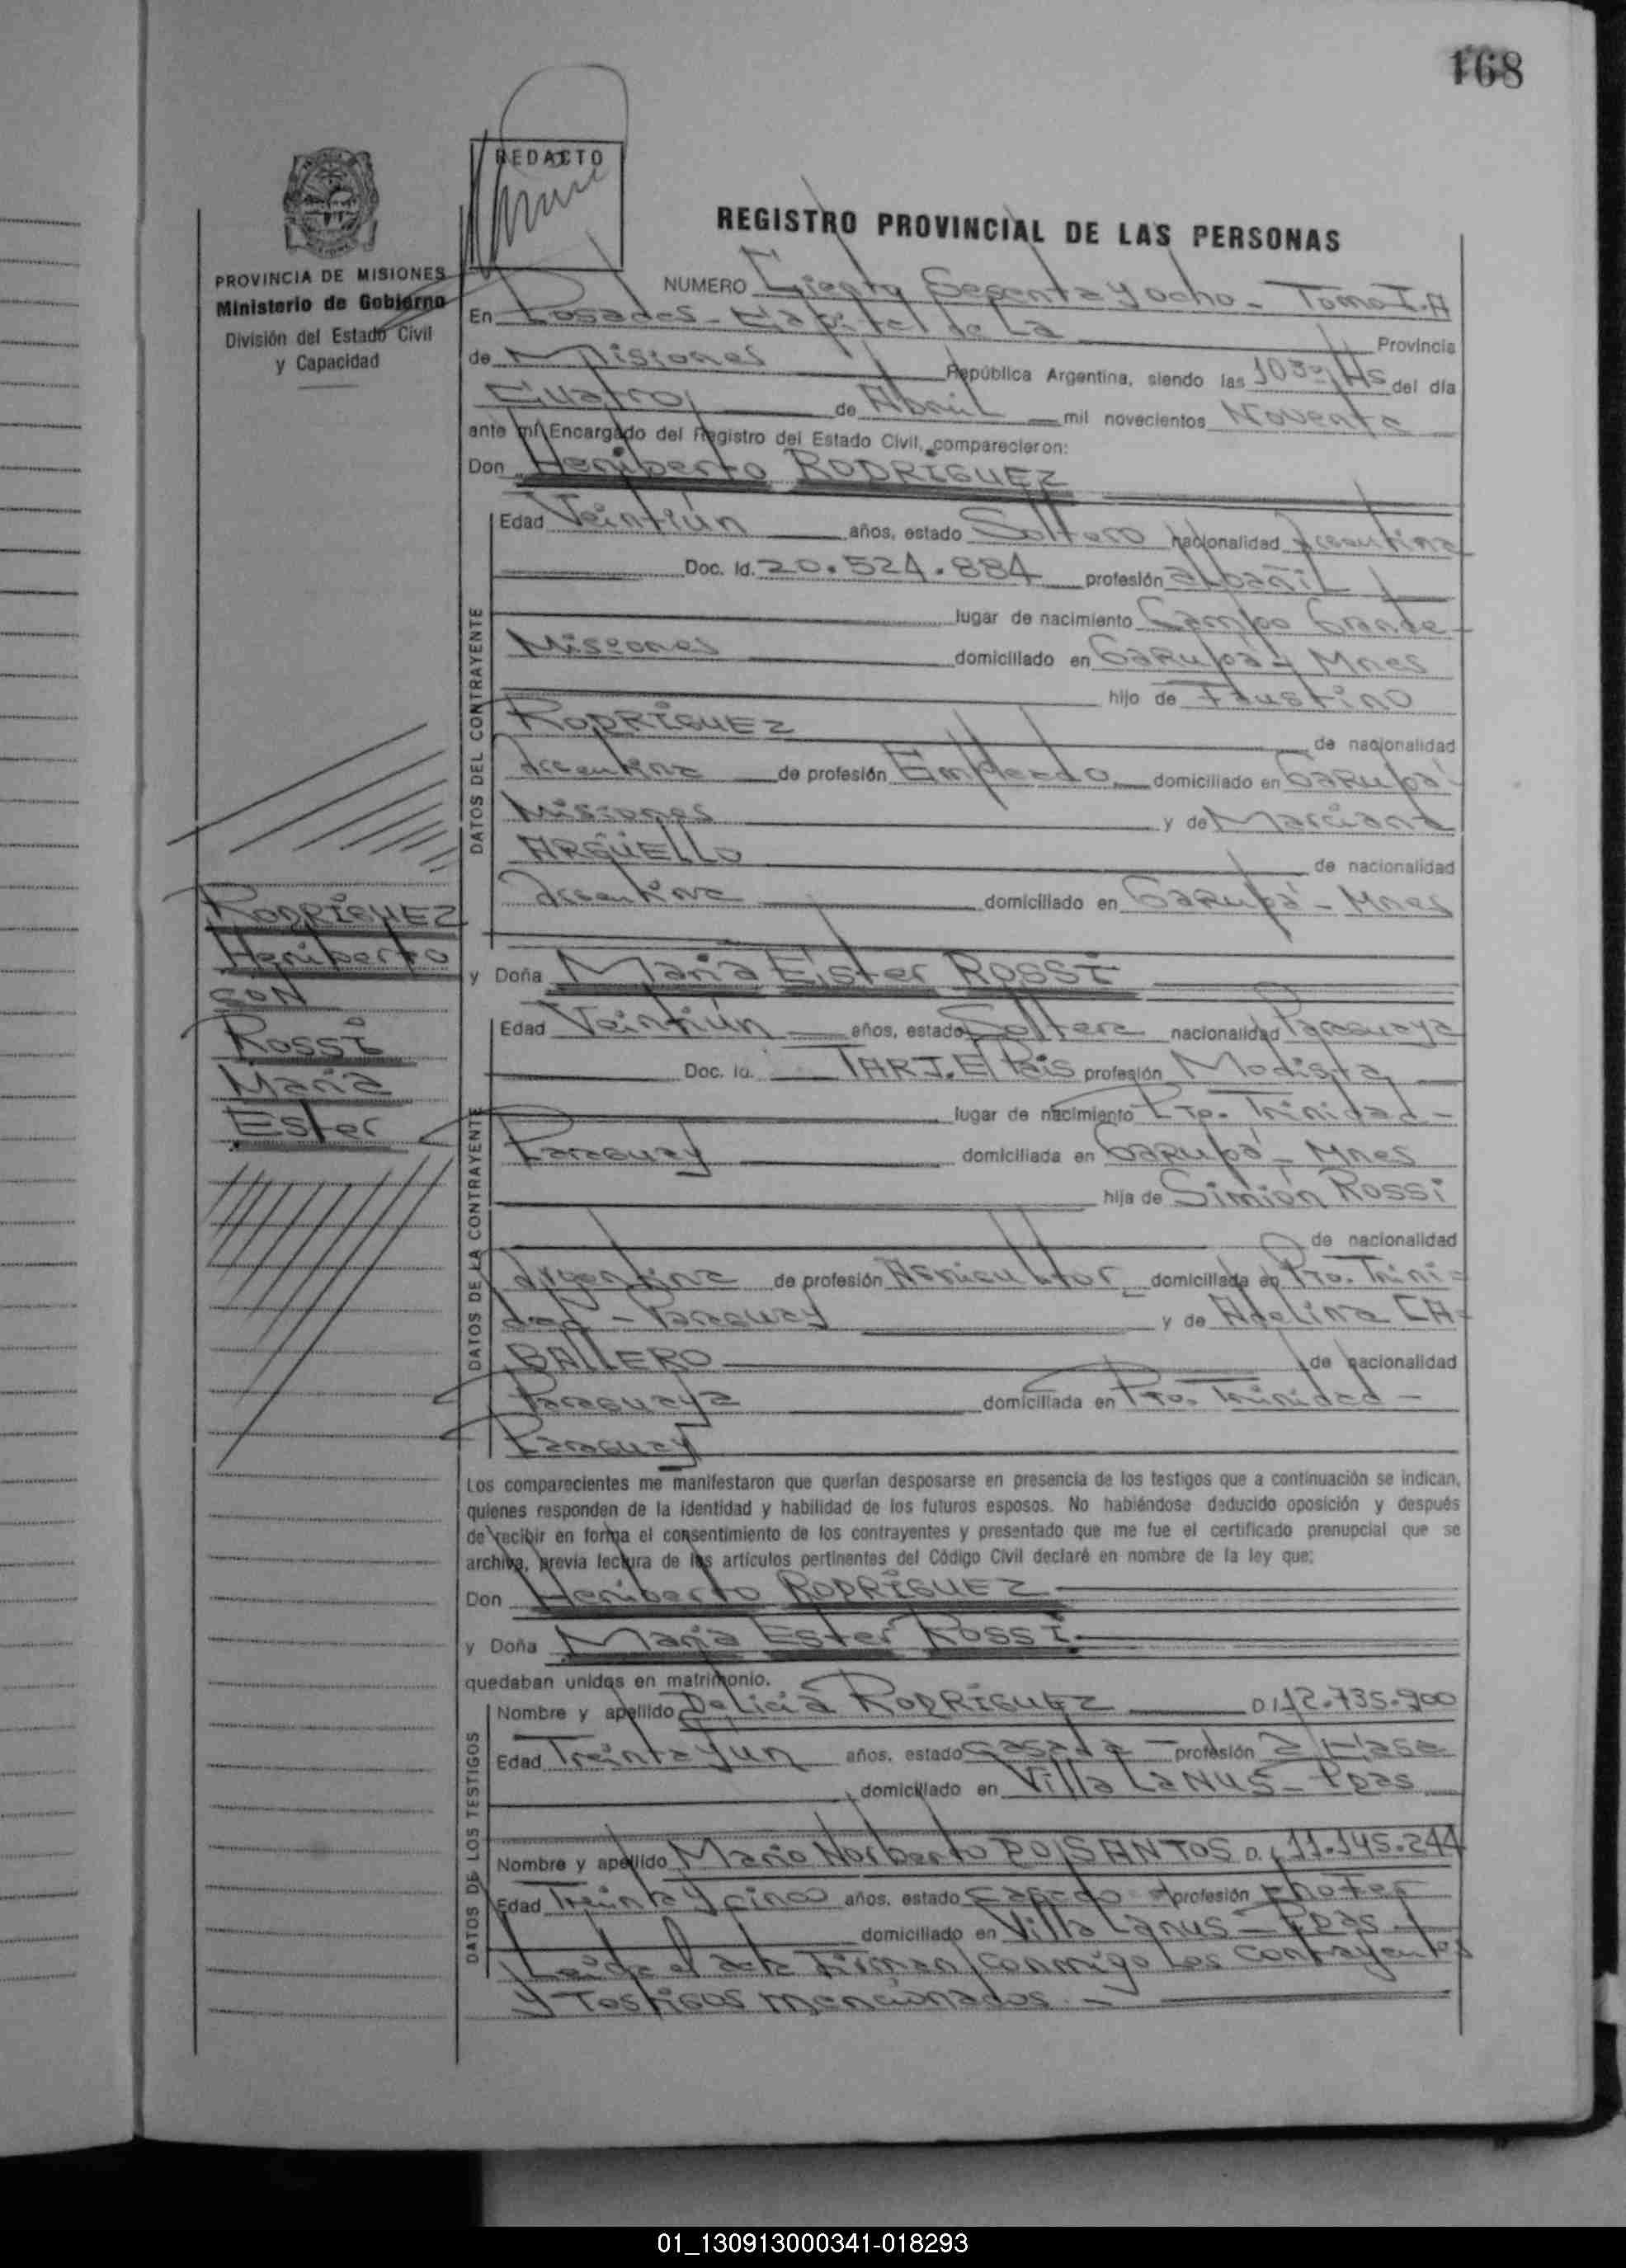 168
REDACTO
REGISTRO PROVINCIAL DE LAS PERSONAS
PROVINCIA DE MISIONES
Ministerio de Gobierno
División del Estado Civil
y Capacidad
NUMERO Ciento Sesenta y ocho - Tomo I.A
En Posadas - Capital de La Provincia
de Misiones República Argentina, siendo las 1030 Hs del día
Cuatro de Abril mil novecientos Noventa
ante mí Encargado del Registro del Estado Civil, comparecieron:
Don Heriberto RODRIGUEZ
DATOS DEL CONTRAYENTE
Edad Veintiún años, estado Soltero nacionalidad Argentina
Doc. Id. 20.524.884 profesión albañil
lugar de nacimiento Campo Grande
Misiones domiciliado en GARupá - Mnes
hijo de Faustino
RODRIGUEZ de nacionalidad
Argentina de profesión Empleado domiciliado en GARupá
Misiones y de Marciana
ARGÜELLO de nacionalidad
Argentina domiciliado en GARupá - Mnes
RODRIGUEZ
Heriberto
CON
ROSSI
María
Ester
y Doña María Ester ROSSI
DATOS DE LA CONTRAYENTE
Edad Veintiún años, estado Soltera nacionalidad Paraguaya
Doc. Id. TARJ.E/ País profesión Modista
lugar de nacimiento Pto. Trinidad -
Paraguay domiciliada en GARupá - Mnes
hija de Simión ROSSi
de nacionalidad
Argentina de profesión Agricultor domiciliada en Pto. Trini=
dad - Paraguay y de Adelina CA=
BALLERO de nacionalidad
Paraguaya domiciliada en Pto. Trinidad -
Paraguay
Los comparecientes me manifestaron que querían desposarse en presencia de los testigos que a continuación se indican,
quienes responden de la identidad y habilidad de los futuros esposos. No habiéndose deducido oposición y después
de recibir en forma el consentimiento de los contrayentes y presentado que me fue el certificado prenupcial que se
archiva, previa lectura de los artículos pertinentes del Código Civil declaré en nombre de la ley que:
Don Heriberto RODRIGUEZ
y Doña María Ester ROSSI
quedaban unidos en matrimonio.
DATOS DE LOS TESTIGOS
Nombre y apellido Delicia RODRIGUEZ D.I 12.735.900
Edad Treinta y un años, estado casada - profesión
domiciliado en Villa LANUS - Pdas
Nombre y apellido Mario Norberto DOS SANTOS D.I 11.145.244
Edad Treinta y cinco años, estado casado profesión chofer
domiciliado en Villa Lanus - Pdas
Leída el acta Firman conmigo Los contrayentes
y Testigos mencionados. -
01_130913000341-018293